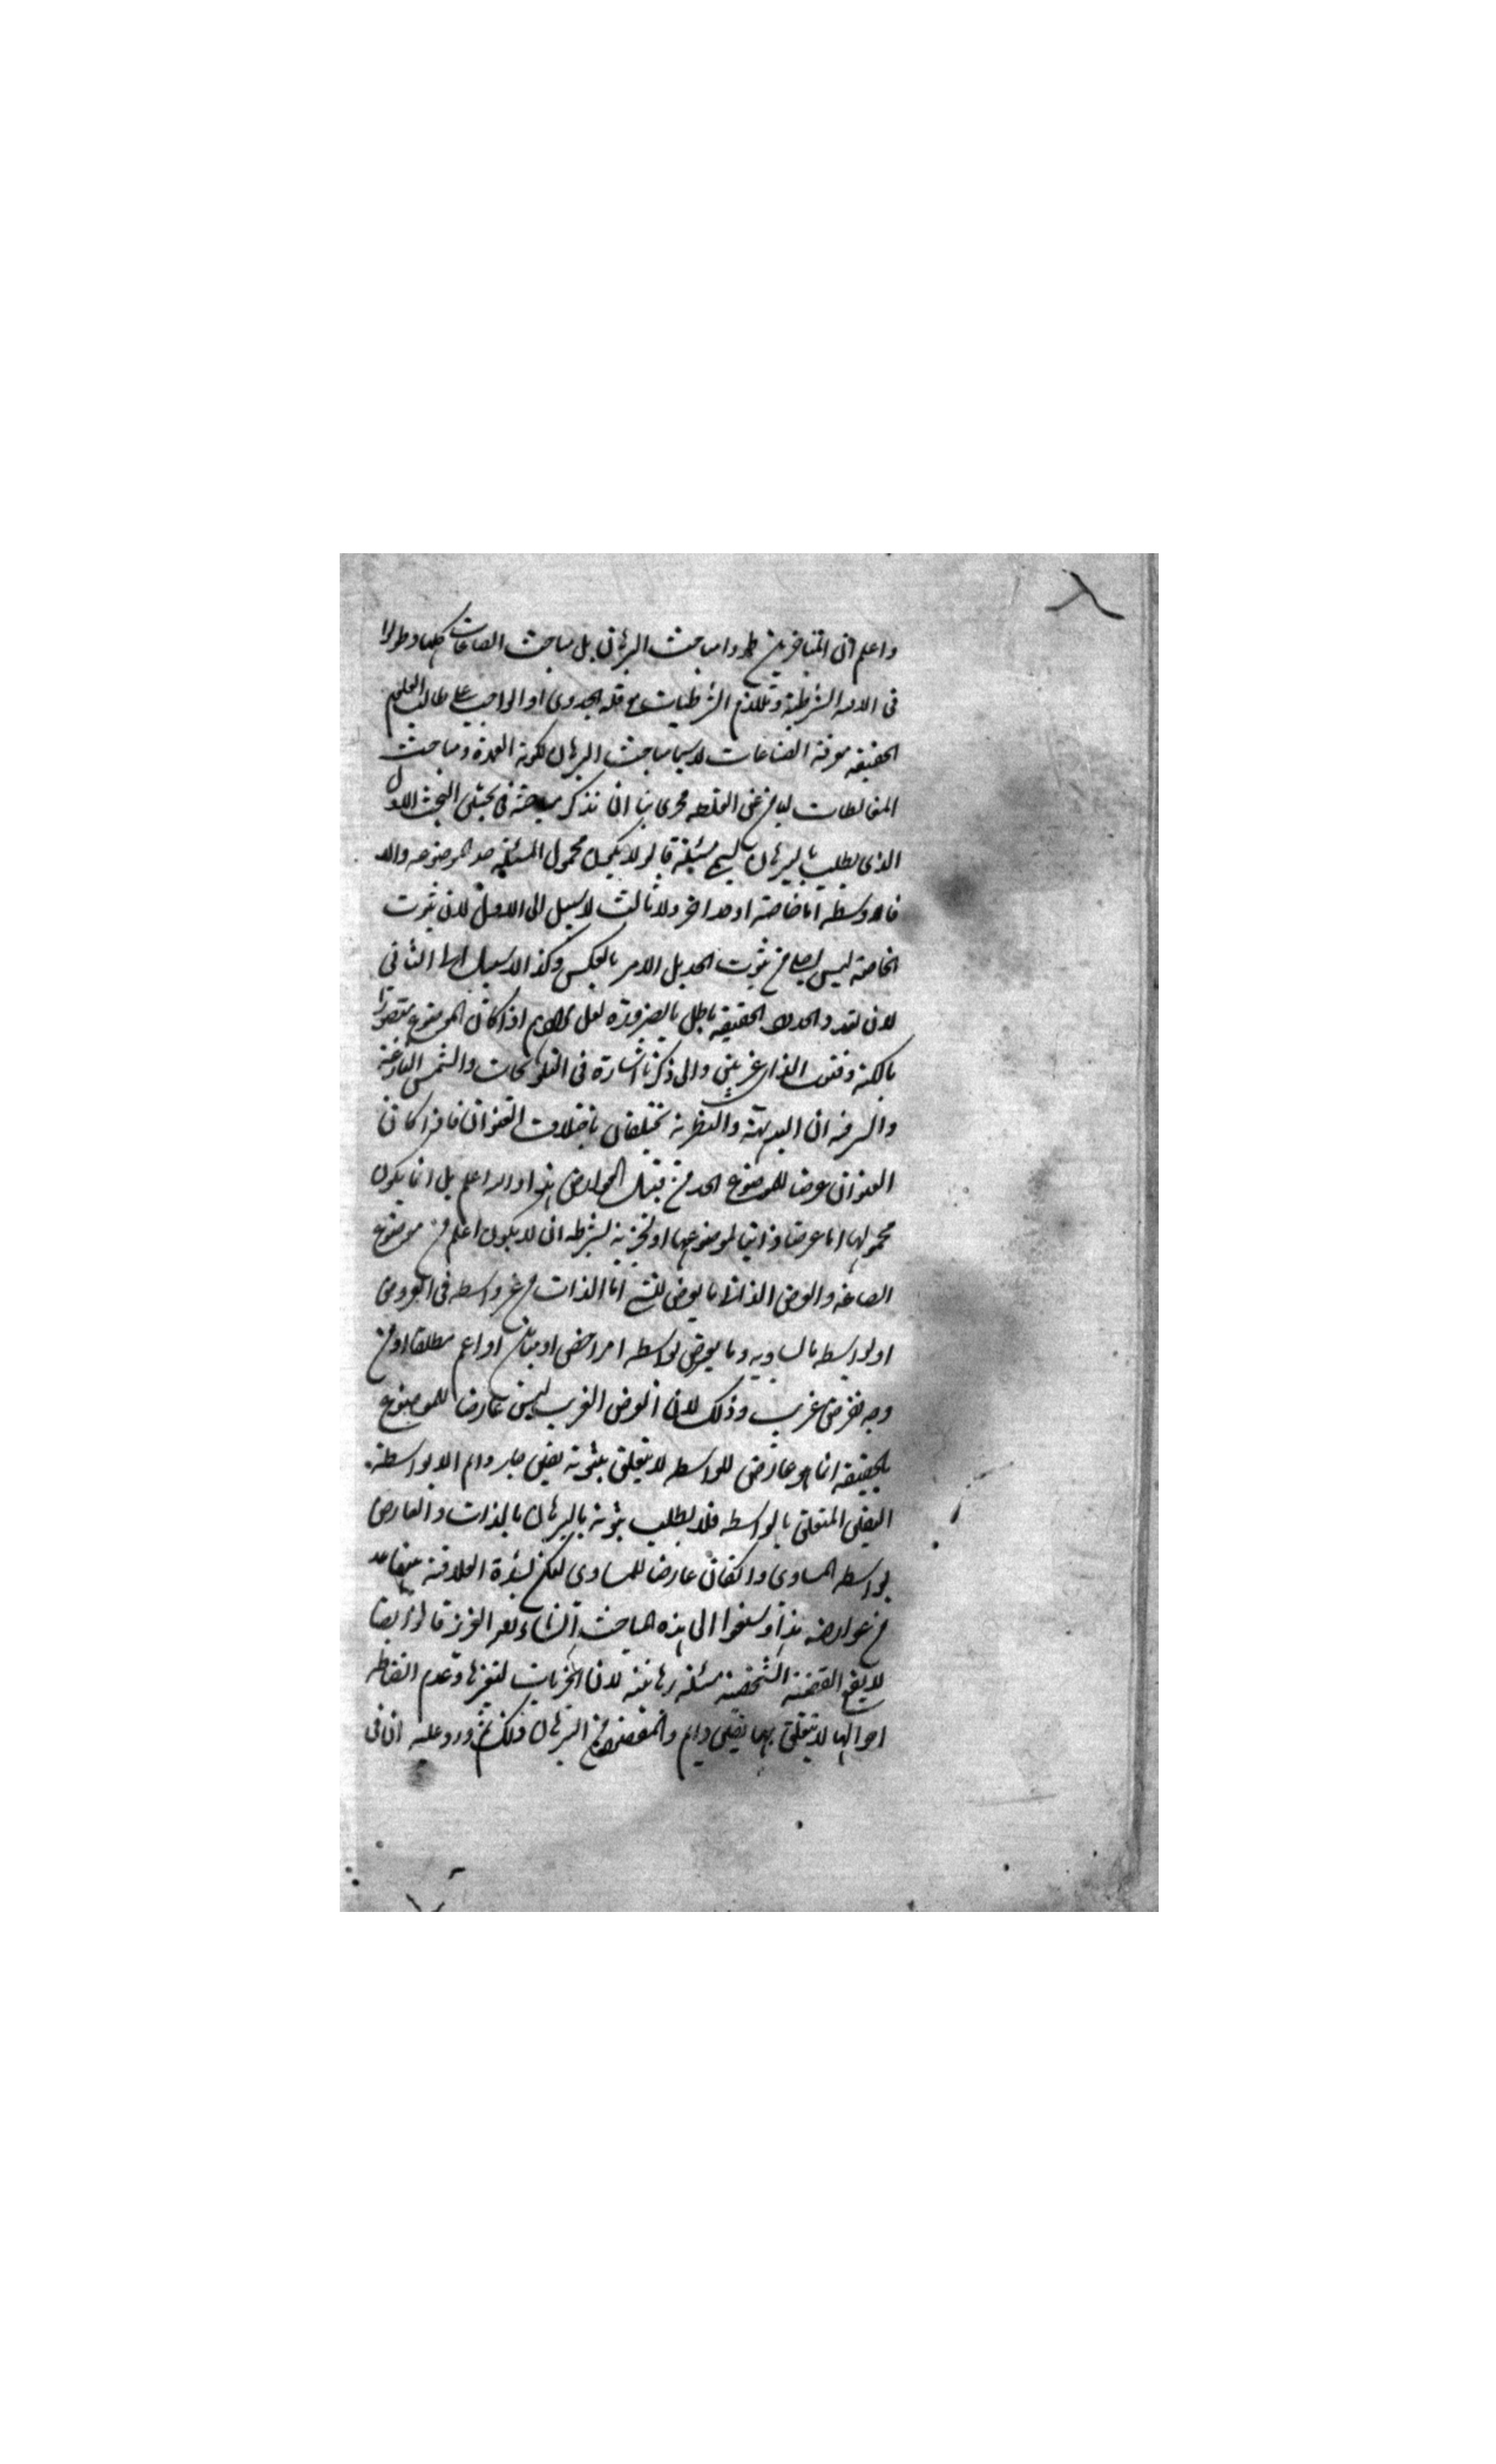 واعلم ان المتاخرين طردوا مباحث البرهان بل مباحث الصناعات كلها وطولوا
فى الشرطية وتلازم الشرطيات مع قلة الجدوى اذ الواجب على طالب العلوم
الحقيقه معرفة الصناعات لاسيما مباحث البرهان لكونه العمدة ومباحث
المغالطات عن الغلط فحرى بنا ان نذكر مباحثه فى بحثين البحث الاول
الذى يطلب بالبرهان يسمى مسئلة قالوا لا يكون محمول المسئلة حد الموضوعه والا
فالاوسط اما خاصة او حد اخر ولا ثالث لا سبيل الى الاول لان ثبوت
الخاصة ليس ثبوت الحد بل الامر بالعكس وكذا لا سبيل الى الثانى
لان تعدد الحدود الحقيقه باطل بالضرورة لعل كلامهم اذا كان الموضوع متصورا
بالكنه وثبوت الذاتى غير بين والى ذكرنا اشارة فى التلويحات والشمس البازغة
والسر فيه ان البديهة والنظرية تختلفان باختلاف العنوان فاذا كان
العنوان عرضا للموضوع الحد من قبيل العوارض هذا والله اعلم بل انما يكون
محمولها اما عرضا ذاتيا لموضوعها او لجزئية بشرط ان لا يكون اعم من موضوع
الصناعة والعرض الذاتى ما يعرض للشئ اما الذات من غير واسطه فى العروض
او بواسطه مساويه وما يعرض بواسطه امر اخص او مباين او اعم مطلقا او من
وجه فعرض غريب وذلك لان العرض الغريب ليس عارضا للموضوع
بالحقيقه انما هو عارض للواسطه لا يتعلق بثبوته يقين دايم الا بواسطة
اليقين المتعلق بالواسطه فلا يطلب ثبوته بالبرهان بالذات والعارض
بواسطه المساوى وان كان عارضا للمساوى لكن لشدة العلاقة بينهما عد
من عوارضه هذا وسنعود الى هذه المباحث ان شاء الله العزيز قالوا ايضا
لا يقع القضية الشخصية مسئلة برهانية لان الجزئيات لتغيرها وعدم انضباط
احوالها لا يتعلق بها يقين دايم والمقصود من البرهان ذلك ثم ورد عليه ان فى